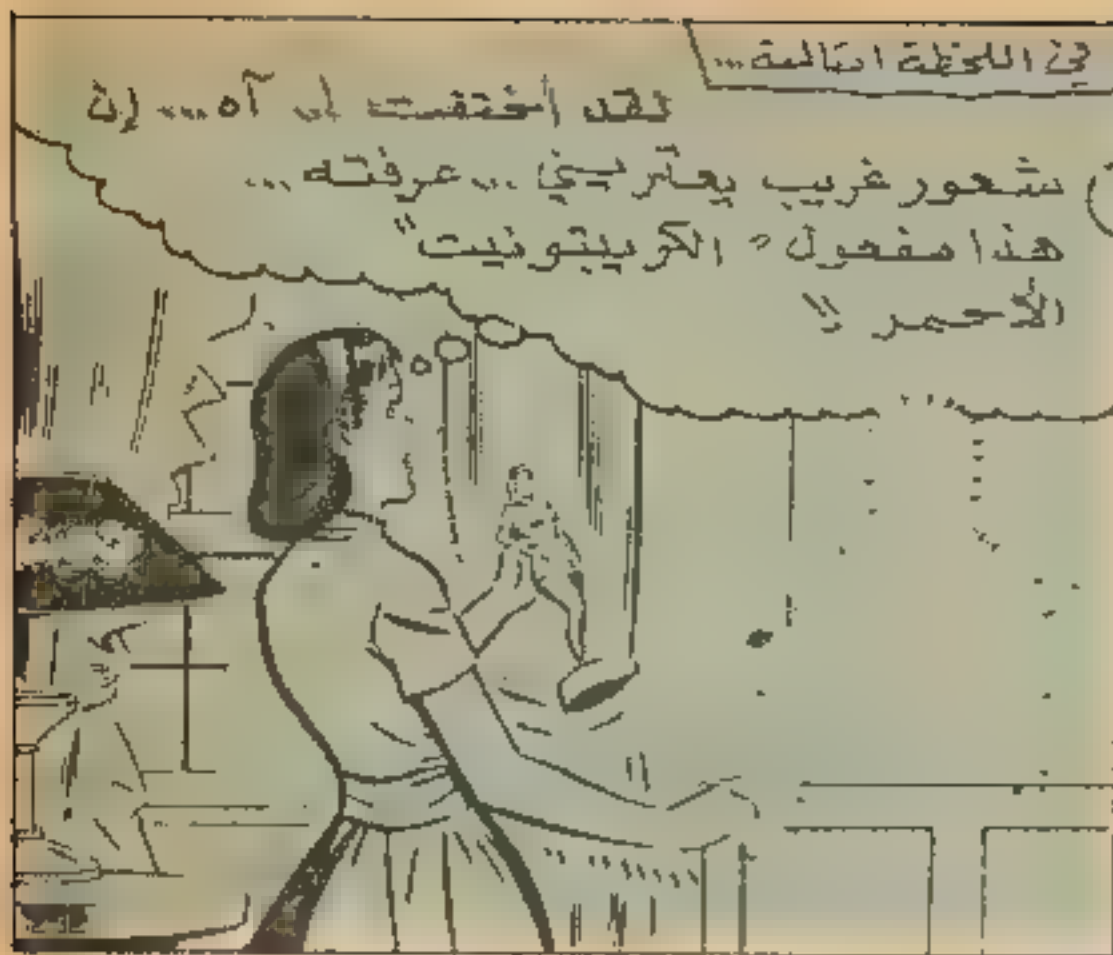 في اللحظة التالية...
لقد اختفت !.. آه... إن
شعور غريب يعتريني ... عرفته...
هذا مفعول " الكريبتونيت "
الأحمر !!